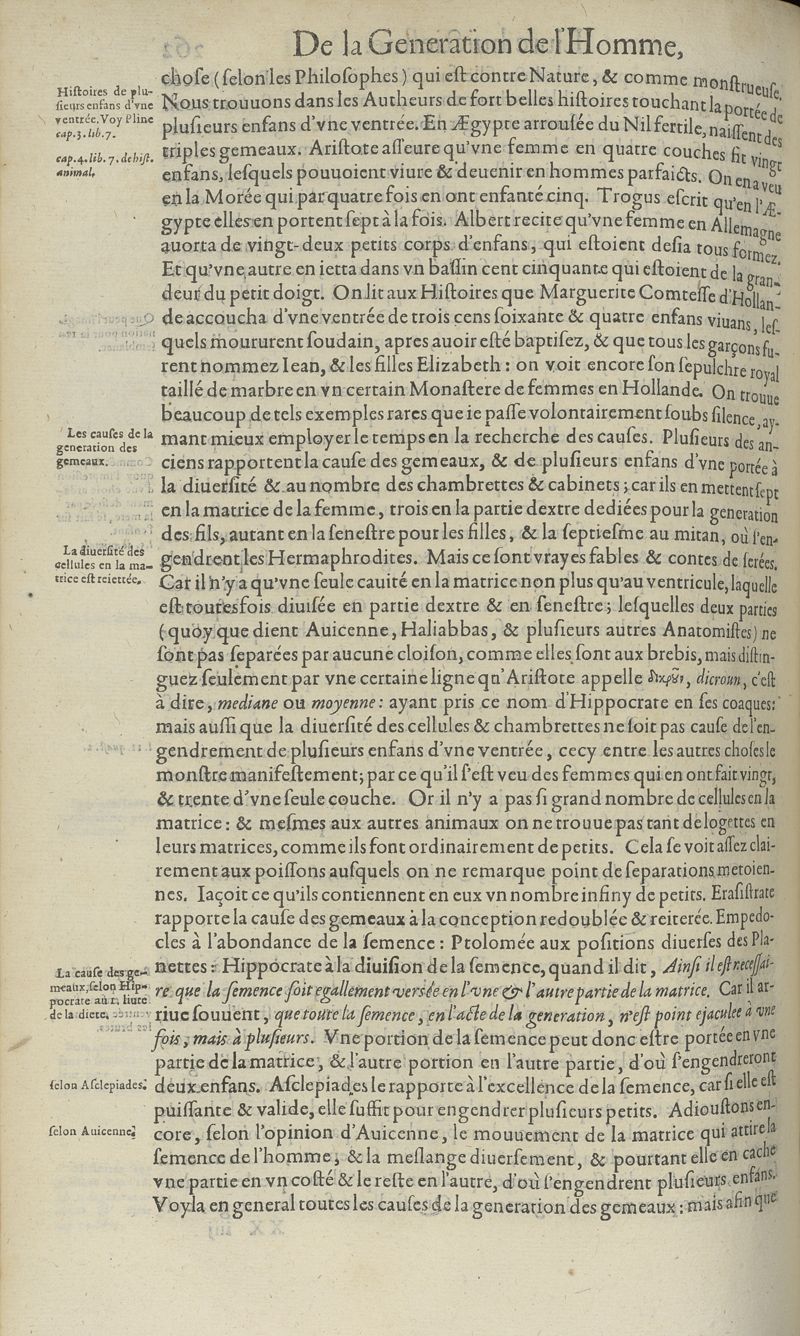 De la Generation de l'Homme,
choſe (ſelon les Philoſophes) qui eſt contre Nature, & comme monſtrueuſe.
Hiſtoires de plu-
ſieurs enfans d'vne
ventrée. Voy Pline
cap. 3. lib. 7.
cap. 4. lib. 7. de hiſt.
animal.
Nous trouuons dans les Autheurs de fort belles hiſtoires touchant la portée de
pluſieurs enfans d'vne ventrée. En Ægypte arrouſée du Nil fertile, naiſſent des
triples gemeaux. Ariſtote aſſeure qu'vne femme en quatre couches fit vingt
enfans, leſquels pouuoient viure & deuenir en hommes parfaicts. On en a veu
en la Morée qui par quatre fois en ont enfanté cinq. Trogus eſcrit qu'en l'Æ-
gypte elles en portent ſept à la fois. Albert recite qu'vne femme en Allemagne
auorta de vingt-deux petits corps d'enfans, qui eſtoient deſia tous formez.
Et qu'vne autre en ietta dans vn baſſin cent cinquante qui eſtoient de la gran-
deur du petit doigt. On lit aux Hiſtoires que Marguerite Comteſſe d'Hollan-
de accoucha d'vne ventrée de trois cens ſoixante & quatre enfans viuans, leſ-
quels moururent ſoudain, apres auoir eſté baptiſez, & que tous les garçons fu-
rent nommez Iean, & les filles Elizabeth: on voit encore ſon ſepulchre royal
taillé de marbre en vn certain Monaſtere de femmes en Hollande. On trouue
beaucoup de tels exemples rares que ie paſſe volontairement ſoubs ſilence, ay-
Les cauſes de la
generation des
gemeaux.
mant mieux employer le temps en la recherche des cauſes. Pluſieurs des an-
ciens rapportent la cauſe des gemeaux, & de pluſieurs enfans d'vne portée à
la diuerſité & au nombre des chambrettes & cabinets; car ils en mettent ſept
en la matrice de la femme, trois en la partie dextre dediées pour la generation
des fils, autant en la ſeneſtre pour les filles, & la ſeptieſme au mitan, où ſ'en-
La diuerſité des
cellules en la ma-
trice eſt reiettée.
gendrent les Hermaphrodites. Mais ce ſont vrayes fables & contes de ſerées.
Car il n'y a qu'vne ſeule cauité en la matrice non plus qu'au ventricule, laquelle
eſt toutesfois diuiſée en partie dextre & en ſeneſtre; leſquelles deux parties
(quoy que dient Auicenne, Haliabbas, & pluſieurs autres Anatomiſtes) ne
ſont pas ſeparées par aucune cloiſon, comme elles ſont aux brebis, mais diſtin-
guez ſeulement par vne certaine ligne qu'Ariſtote appelle dicroun, c'eſt
à dire, mediane ou moyenne: ayant pris ce nom d'Hippocrate en ſes coaques:
mais auſſi que la diuerſité des cellules & chambrettes ne ſoit pas cauſe de l'en-
gendrement de pluſieurs enfans d'vne ventrée, cecy entre les autres choſes le
monſtre manifeſtement; par ce qu'il ſ'eſt veu des femmes qui en ont fait vingt,
& trente d'vne ſeule couche. Or il n'y a pas ſi grand nombre de cellules en la
matrice: & meſmes aux autres animaux on ne trouue pas tant de logettes en
leurs matrices, comme ils font ordinairement de petits. Cela ſe voit aſſez clai-
rement aux poiſſons auſquels on ne remarque point de ſeparations metoien-
nes. Iaçoit ce qu'ils contiennent en eux vn nombre infiny de petits. Eraſiſtrate
rapporte la cauſe des gemeaux à la conception redoublée & reiterée. Empedo-
cles à l'abondance de la ſemence: Ptolomée aux poſitions diuerſes des Pla-
La cauſe des ge-
meaux, ſelon Hip-
pocrate au 1. liure
de la diete.
nettes: Hippocrate à la diuiſion de la ſemence, quand il dit, Ainſi il eſt neceſſai-
re que la ſemence ſoit egallement verſée en l'vne & l'autre partie de la matrice. Car il ar-
riue ſouuent, que toute la ſemence, en l'acte de la generation, n'eſt point ejaculee à vne
fois, mais à pluſieurs. Vne portion de la ſemence peut donc eſtre portée en vne
partie de la matrice, & l'autre portion en l'autre partie, d'où ſ'engendreront
ſelon Aſclepiades.
deux enfans. Aſclepiades le rapporte à l'excellence de la ſemence, car ſi elle eſt
puiſſante & valide, elle ſuffit pour engendrer pluſieurs petits. Adiouſtons en-
ſelon Auicenne.
core, ſelon l'opinion d'Auicenne, le mouuement de la matrice qui attire la
ſemence de l'homme, & la meſlange diuerſement, & pourtant elle en cache
vne partie en vn coſté & le reſte en l'autre, d'où ſ'engendrent pluſieurs enfans.
Voyla en general toutes les cauſes de la generation des gemeaux: mais afin que